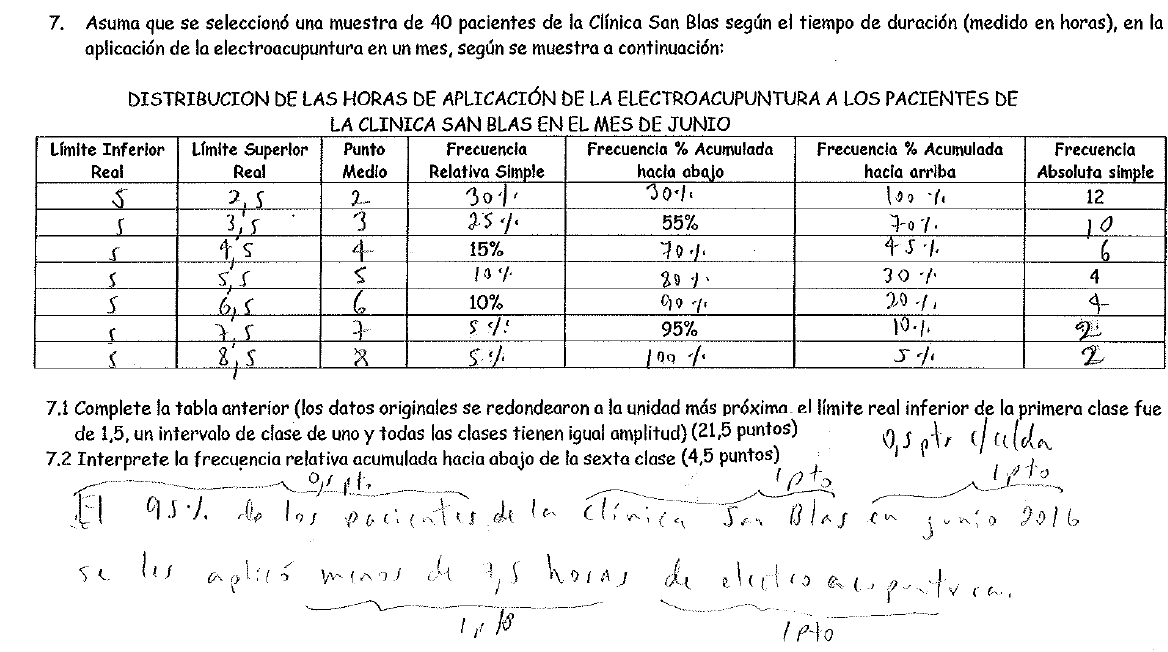 7. Asuma que se seleccionó una muestra de 40 pacientes de la Clínica San Blas según el tiempo de duración (medido en horas), en la
aplicación de la electroacupuntura en un mes, según se muestra a continuación:
DISTRIBUCION DE LAS HORAS DE APLICACIÓN DE LA ELECTROACUPUNTURA A LOS PACIENTES DE
LA CLINICA SAN BLAS EN EL MES DE JUNIO
Límite Inferior Real | Límite Superior Real | Punto Medio | Frecuencia Relativa Simple | Frecuencia % Acumulada hacia abajo | Frecuencia % Acumulada hacia arriba | Frecuencia Absoluta simple
5 | 2,5 | 2 | 30% | 30% | 100% | 12
5 | 3,5 | 3 | 25% | 55% | 70% | 10
5 | 4,5 | 4 | 15% | 70% | 45% | 6
5 | 5,5 | 5 | 10% | 80% | 30% | 4
5 | 6,5 | 6 | 10% | 90% | 20% | 4
5 | 7,5 | 7 | 5% | 95% | 10% | 2
5 | 8,5 | 8 | 5% | 100% | 5% | 2
7.1 Complete la tabla anterior (los datos originales se redondearon a la unidad más próxima. el límite real inferior de la primera clase fue
de 1,5, un intervalo de clase de uno y todas las clases tienen igual amplitud) (21,5 puntos)
0,5 pts c/celda
7.2 Interprete la frecuencia relativa acumulada hacia abajo de la sexta clase (4,5 puntos)
0,5 pt. 1 pto 1 pto
El 95% de los pacientes de la Clínica San Blas en junio 2016
se les aplicó menos de 7,5 horas de electroacupuntura.
1 pto 1 pto